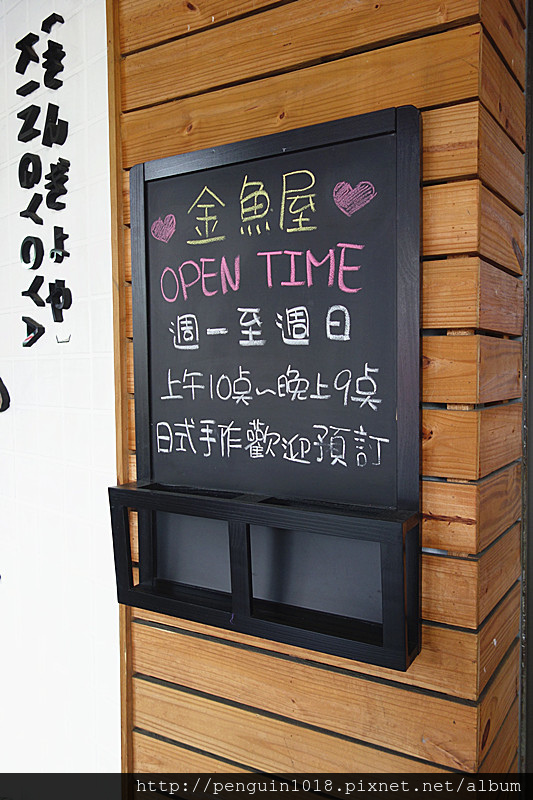 金魚屋
OPEN TIME
週一至週日
上午10点～晚上9点
日式手作歡迎預訂
「きんぎょや」
http://penguin1018.pixnet.net/album